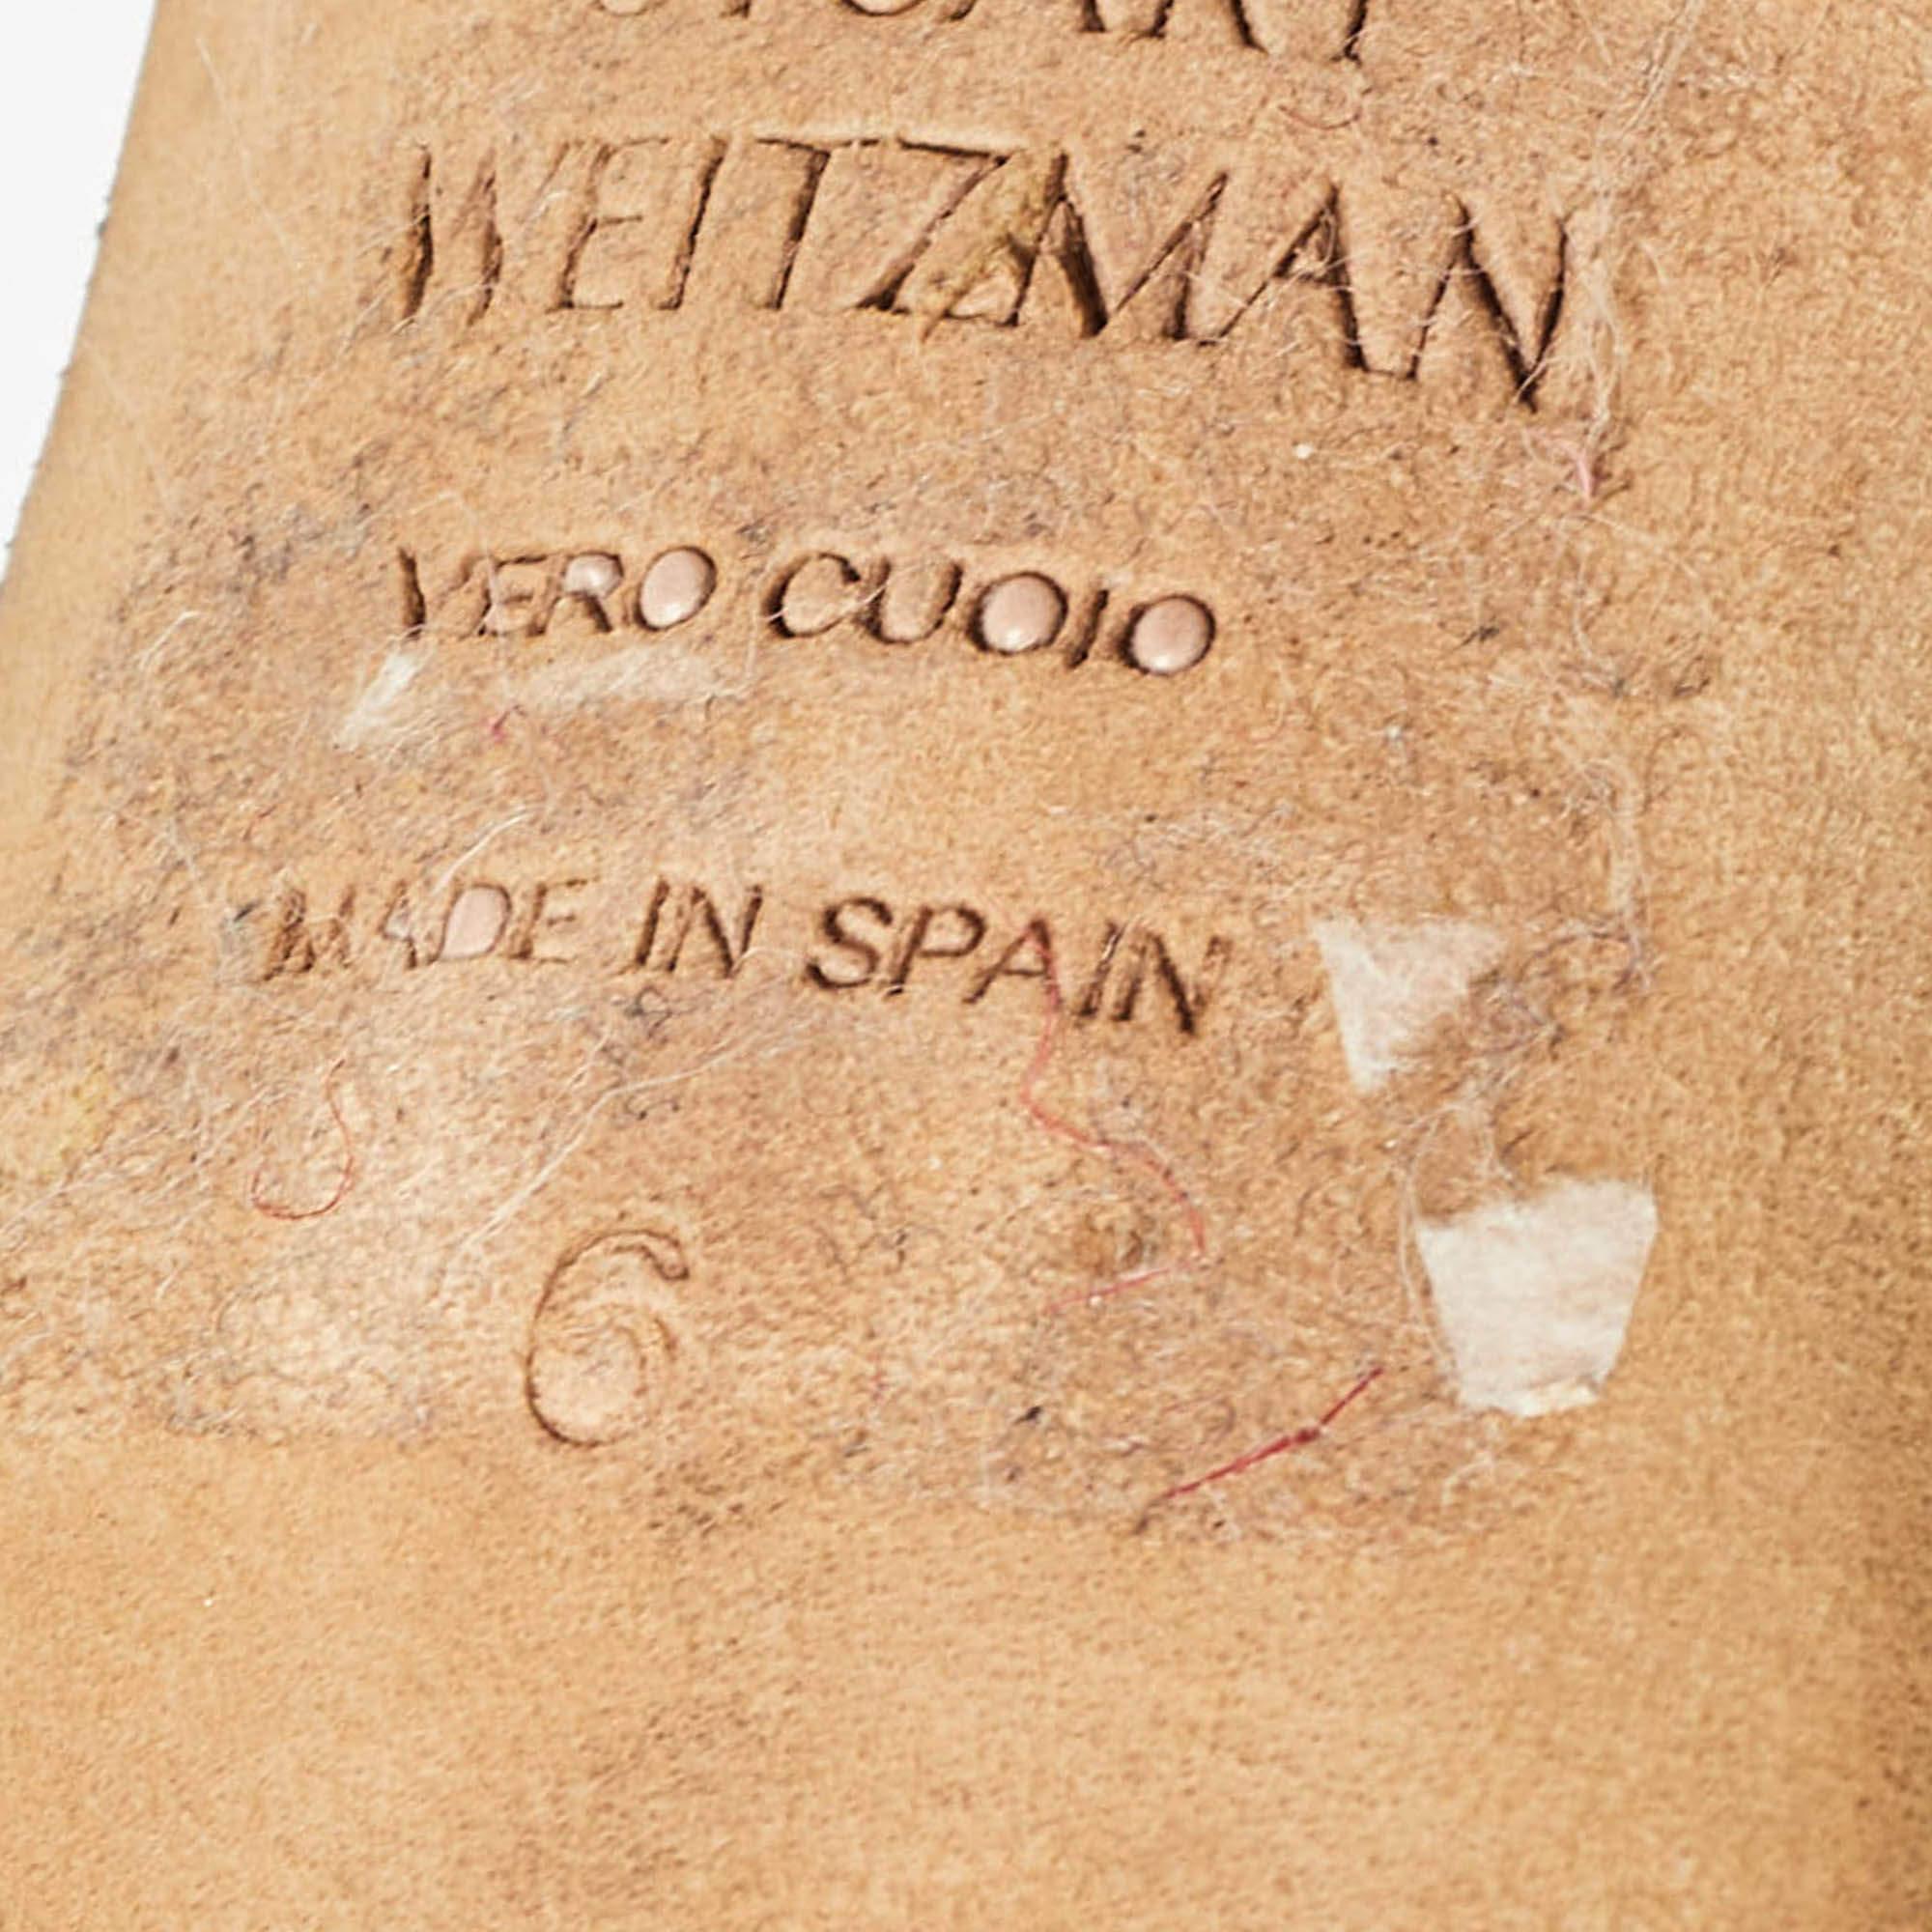 STUART
WEITZMAN
VERO CUOIO
MADE IN SPAIN
6